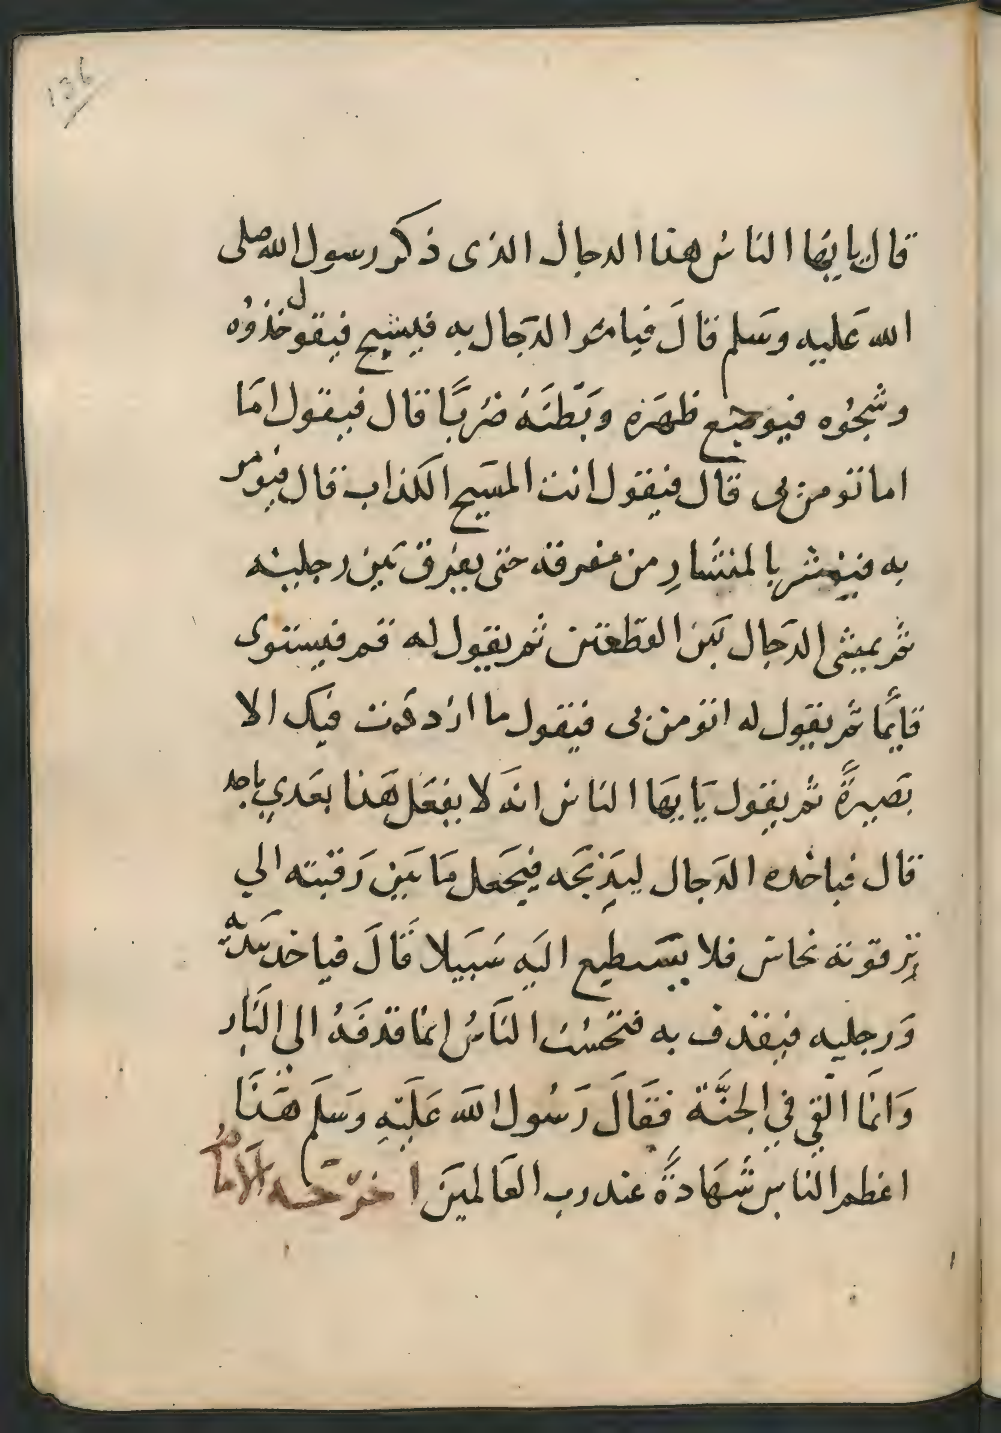 136
قال يايها الناس هذا الدجال الذى ذكر رسول الله صلى
الله عَليه وسَلم قالَ فيامر الدجال به فيشبح فيقول خذوُه
وشجُوه فيوضع ظهَره وَبَطنَهُ ضَربًا قال فيقول امَا
اما تومن بى قال فيقول انت المسَيح الكذاب قال فيومر
به فينشر بالمنشارِ من مفرقه حتى يفرق بَين رجليه
ثم يمشى الدَجال بَين القطعتين ثم يقول له قم فيستوى
قايمًا ثم يقول له اتومن بى فيقول ما ازددت فيك الا
بَصيرةً ثم يقول يَايهَا الناس انهَ لا يفعَل هَذا بعَدي باحد
قال فياخذه الدجال ليَذبحَه فيجَعل مَا بَين رَقبته الي
ترقوته نحاس فلا يسَتطيع اليَه سَبيلا قَالَ فياخذ بيَديه
وَرجليه فيقذف به فتحسْب النَاسُ انما قذفَهُ الي النَار
وَانمَا القي في الجنَّة فقَالَ رَسُول الله عَليَهِ وَسَلم هَذَا
اعظم الناس شَهَادةً عند رب العَالمينَ اخرَجَه الامام